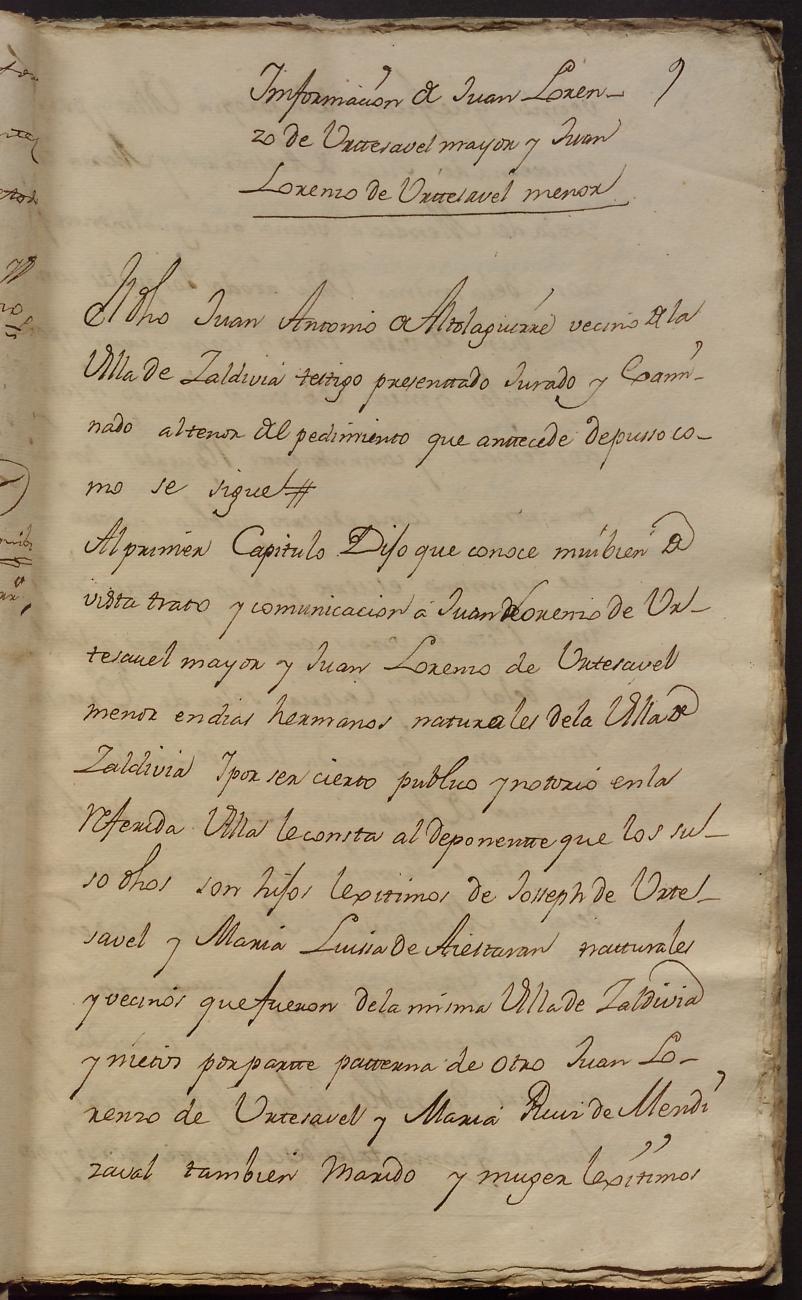 Imformacion de Juan Loren- 9
zo de Urttesavel mayor y Juan
Lorenzo de Urttesavel menor
El dho Juan Antonio de Altolaguirre vecino de la
Villa de Zaldivia testigo presenttado Jurado y Exami-
nado al tenor del pedimiento que anttecede depusso co-
mo se sigue
Al primer Capitulo Dijo que conoce mui bien de
vista trato y comunicacion a Juan de Lorenzo de Ur-
tesavel mayor y Juan Lorenzo de Urtesavel
menor en dias hermanos naturales de la Villa de
Zaldivia Y por ser cierto publico y notorio en la
referida Villa le consta al deponentte que los sus-
so dhos son hijos lexitimos de Josseph de Urtes-
savel y Maria Luissa de Aiestaran natturales
y vecinos que fueron de la misma Villa de Zaldivia
y nietos por partte patterna de otro Juan Lo-
renzo de Urtesavel y Maria Ruiz de Mendi
zaval tambien Marido y muger lexitimos